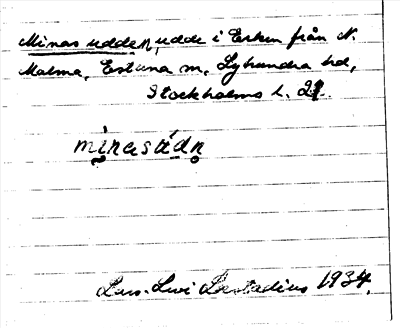 Minas udden, udde i Erken från N.
Malma, Estuna sn, Lyhundra hd,
Stockholms l. 21.
mìnasúdn
Lars-Levi Læstadius 1934.